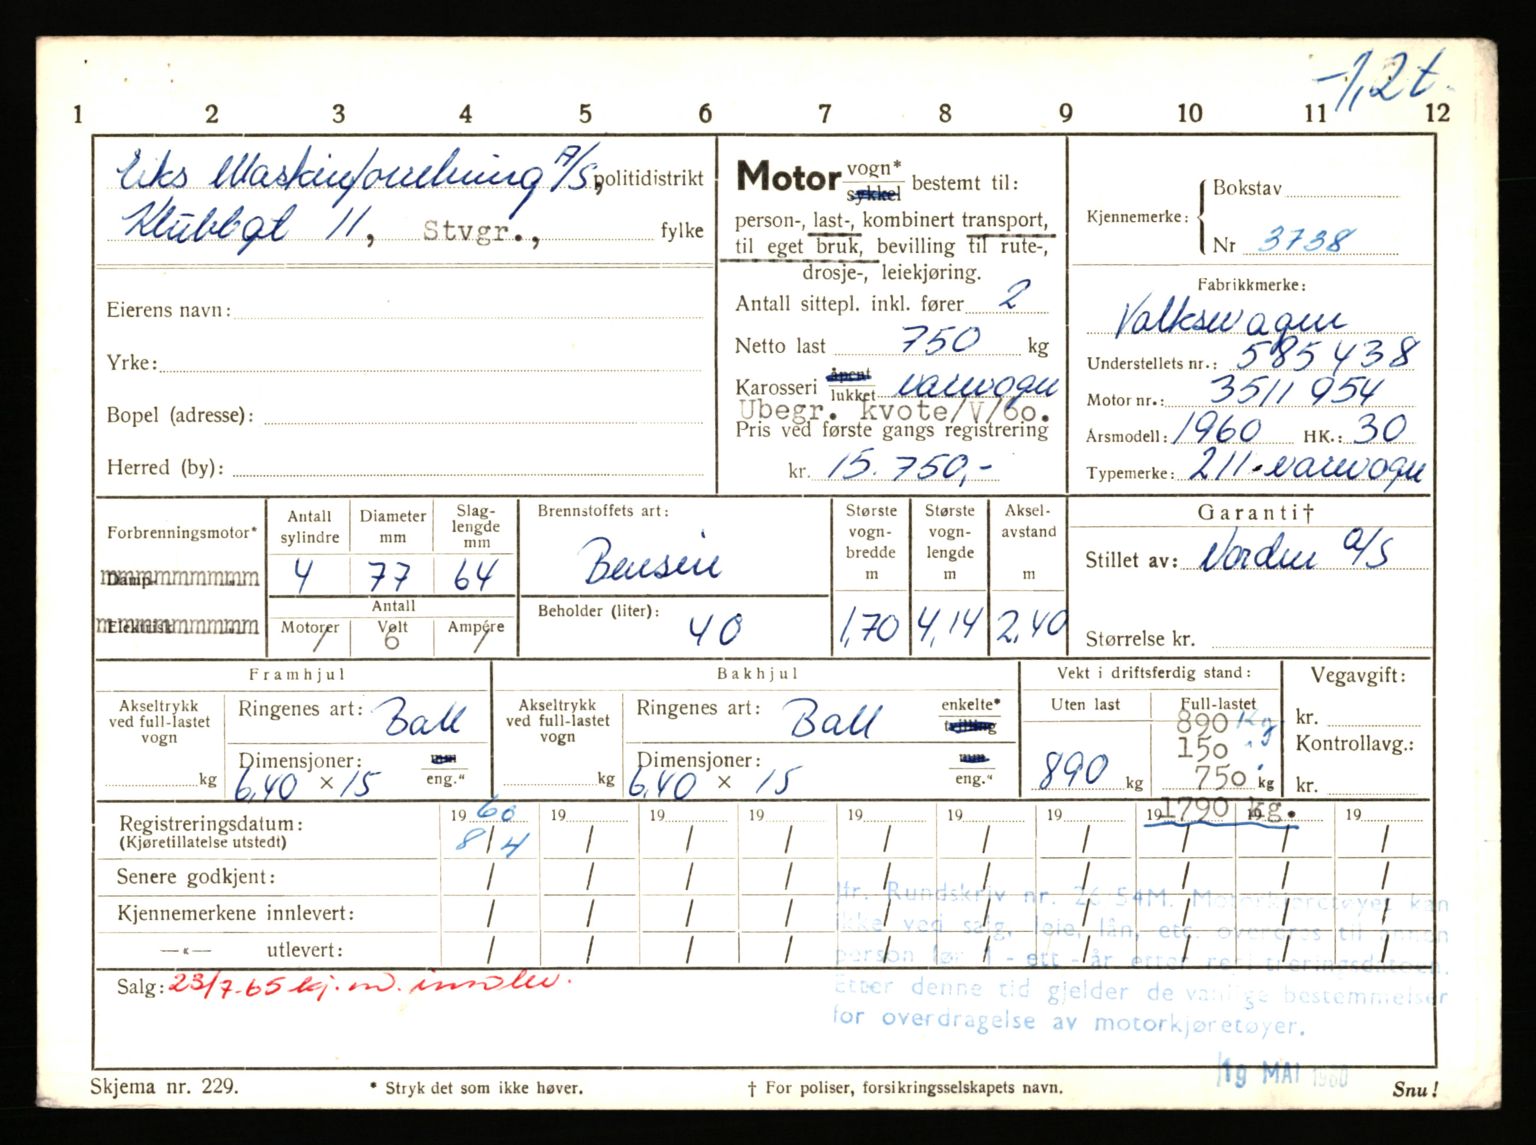 -1,2t.
1 2 3 4 5 6 7 8 9 10 11 12
Eiks Maskinforretning A/S, politidistrikt
Klubbgt 11, Stvgr., fylke
Eierens navn:
Yrke:
Bopel (adresse):
Herred (by):
Motor vogn* sykkel bestemt til:
person-, last-, kombinert transport,
til eget bruk, bevilling til rute-,
drosje-, leiekjøring.
Antall sittepl. inkl. fører 2
Netto last 750 kg
Karosseri åpent lukket varevogn
Ubegr. kvote/V/60.
Pris ved første gangs registrering
kr. 15.750,-
Kjennemerke: Bokstav
Nr 3738
Fabrikkmerke:
Volkswagen
Understellets nr.: 585438
Motor nr.: 3511954
Årsmodell: 1960 HK.: 30
Typemerke: 211-varevogn
Forbrenningsmotor*
Damp-
Elektrisk
Antall sylindre
Diameter mm
Slag-lengde mm
4 77 64
Antall
Motorer Volt Ampére
/ 6 /
Brennstoffets art:
Bensin
Beholder (liter):
40
Største vogn-bredde m
1,70
Største vogn-lengde m
4,14
Aksel-avstand m
2,40
Garanti†
Stillet av: Norden a/s
Størrelse kr.
Framhjul
Akseltrykk ved full-lastet vogn
kg
Ringenes art: Ball
Dimensjoner: mm eng."
6,40 × 15
Bakhjul
Akseltrykk ved full-lastet vogn
kg
Ringenes art: Ball enkelte* tvilling
Dimensjoner: mm eng."
6,40 × 15
Vekt i driftsferdig stand:
Uten last Full-lastet
890 kg
890 kg
150 "
750 kg
1790 kg.
Vegavgift:
kr.
Kontrollavg.:
kr.
Registreringsdatum: 19 60 19 19 19 19 19 19 19 19 19
(Kjøretillatelse utstedt) 8/4 / / / / / / / / /
Senere godkjent: / / / / / / / / / /
Kjennemerkene innlevert: / / / / / / / / / /
—«— utlevert: / / / / / / / / / /
Salg: 23/7-65 kj.m. innlev.
Jfr. Rundskriv nr. 26 54M. Motorkjøretøyet kan
ikke ved salg, leie, lån, etc. overdras til annen
person før 1 - ett - år etter registreringsdatoen.
Etter denne tid gjelder de vanlige bestemmelser
for overdragelse av motorkjøretøyer.
19 MAI 1960
Skjema nr. 229. * Stryk det som ikke høver. † For poliser, forsikringsselskapets navn. Snu!